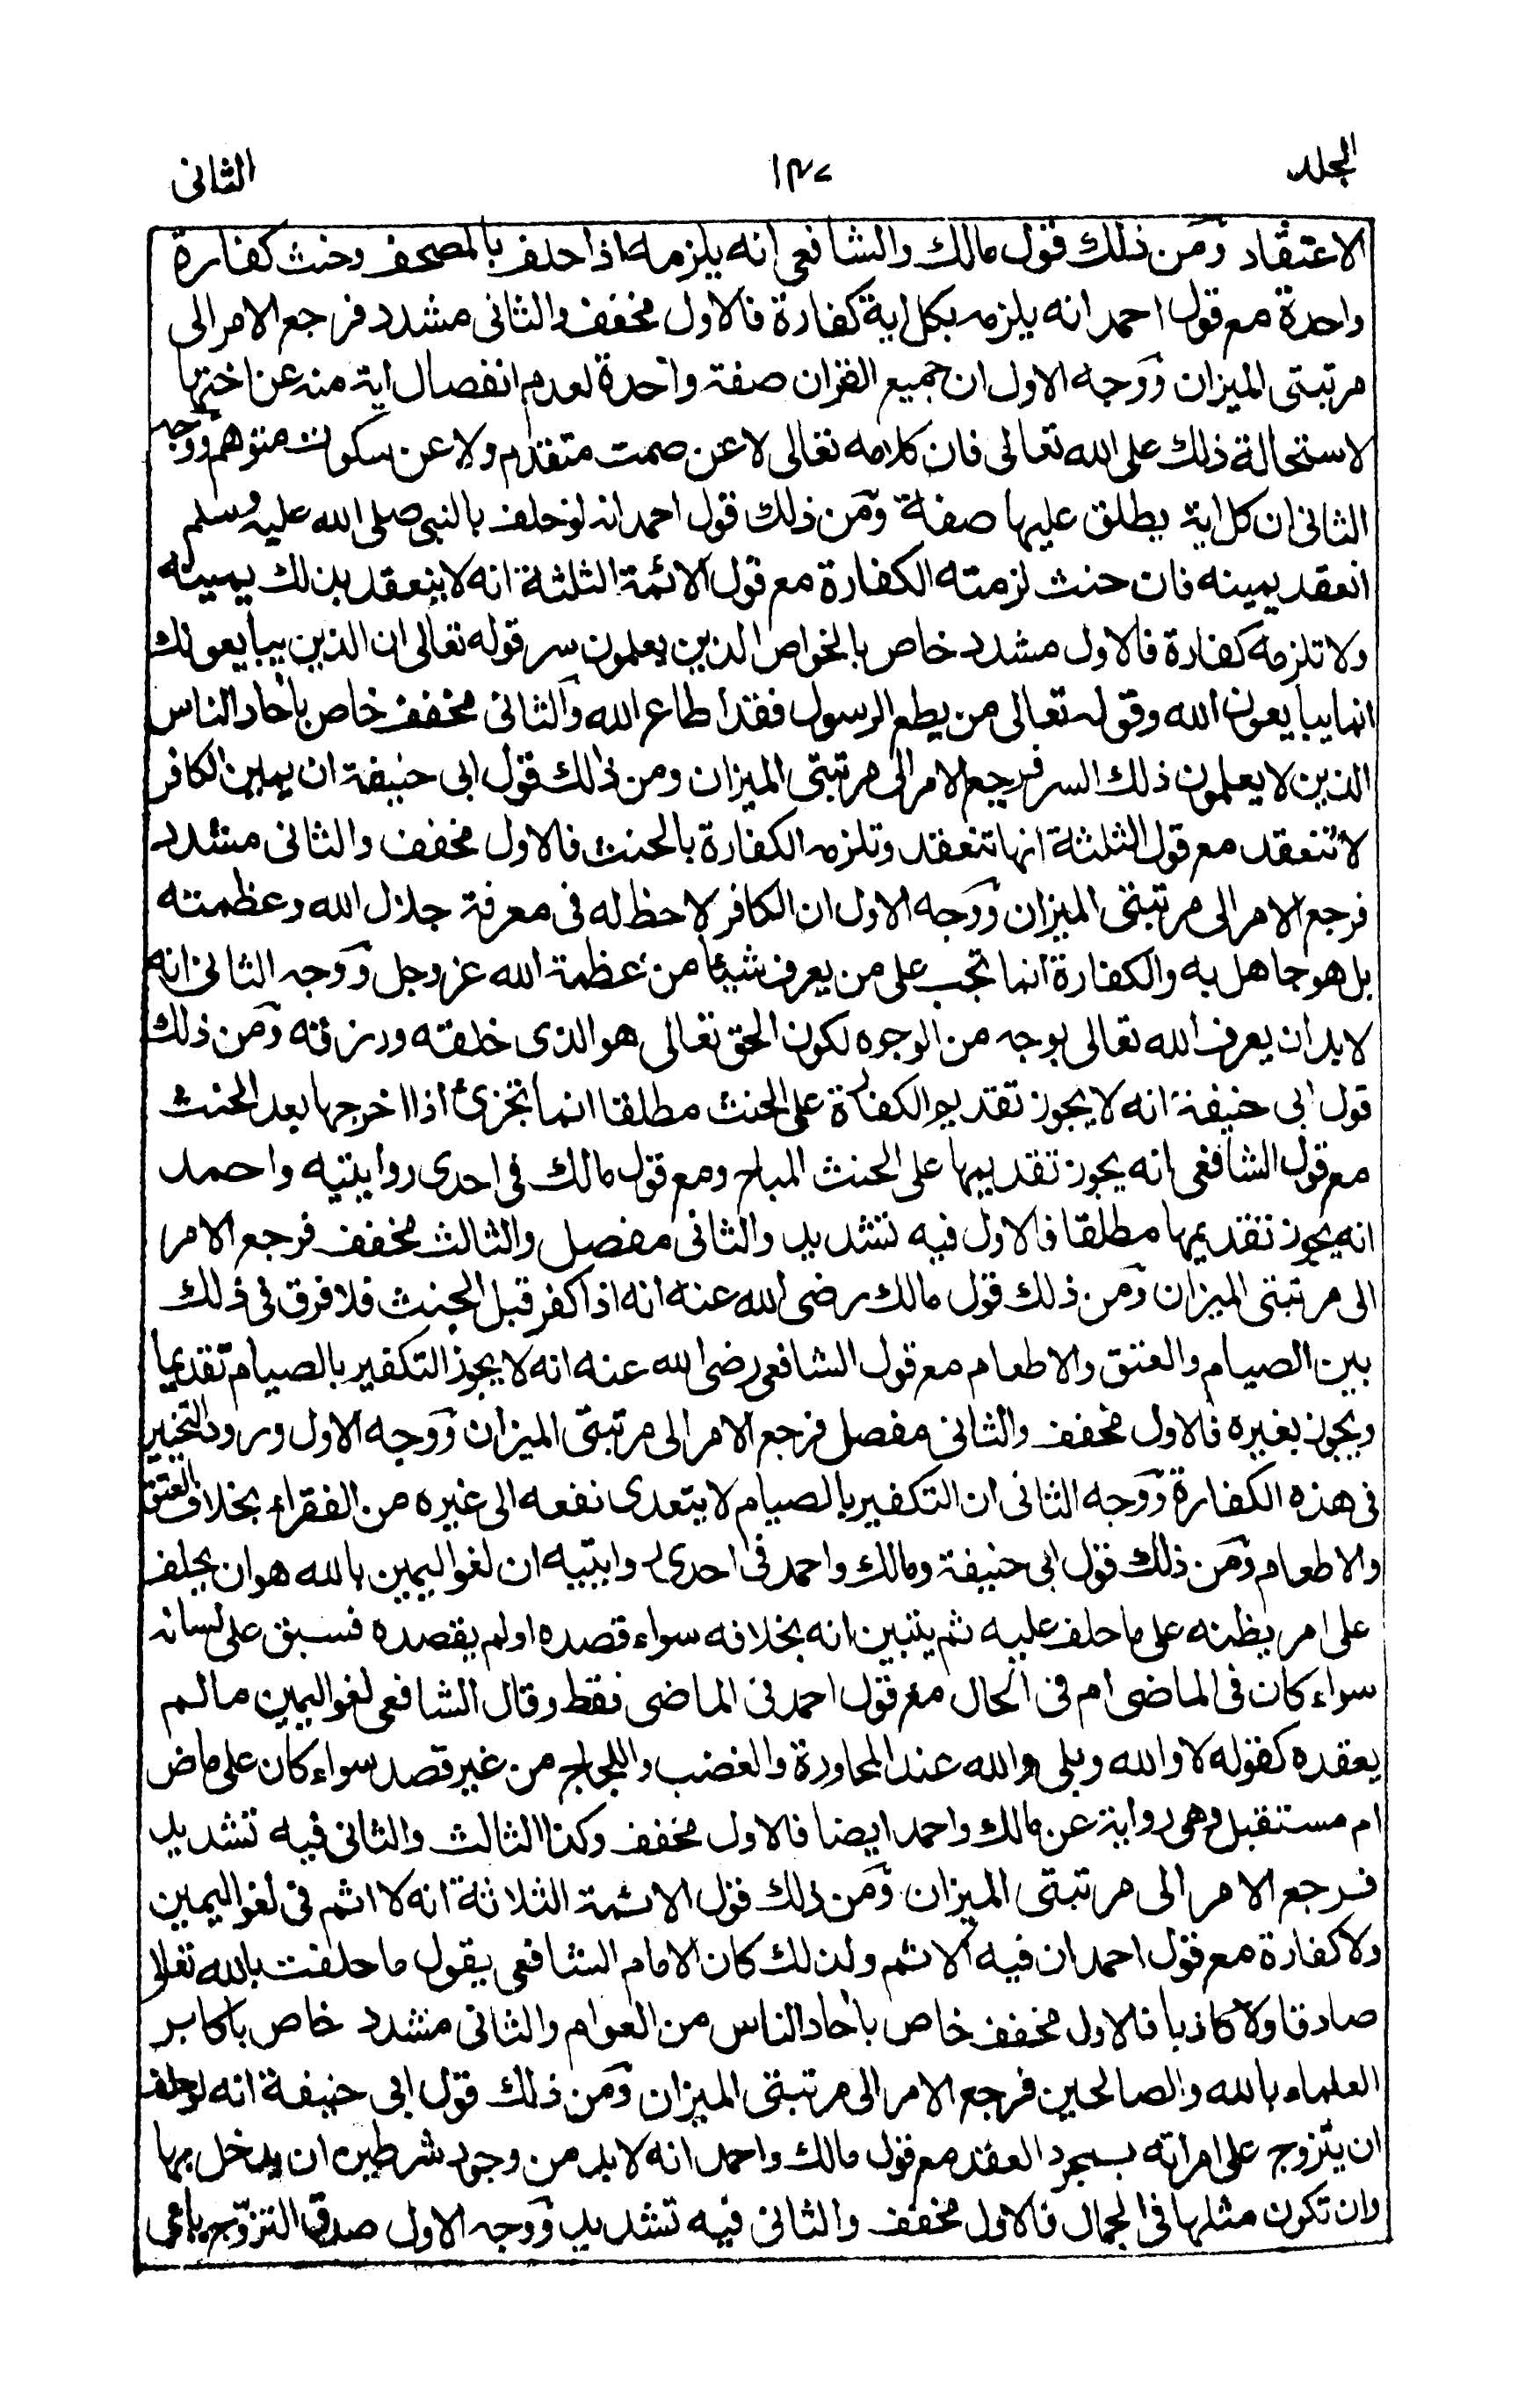 الجلد
١٣٧
الثانى
الاعتقاد ومن ذلك قول مالك والشافعى انه يلزمه اذا حلف بالمصحف وحنث كفارة
واحدة مع قول احمد انه يلزمه بكل اية كفارة فالاول مخفف والثانى مشدد فرجع الامر الى
مرتبتى الميزان ووجه الاول ان جميع القران صفة واحدة لعدم انفصال اية منه عن اختها
لاستحالة ذلك على الله تعالى فان كلامه تعالى لا عن صمت متقدم ولا عن سكوت متوهم ووجه
الثانى ان كل اية يطلق عليها صفة ومن ذلك قول احمد انه لو حلف بالنبى صلى الله عليه وسلم
انعقد يمينه فان حنث لزمته الكفارة مع قول الائمة الثلثة انه لا ينعقد بذلك يمينه
ولا تلزمه كفارة فالاول مشدد خاص بالخواص الذين يعلمون سر قوله تعالى ان الذين يبايعونك
انما يبايعون الله وقوله تعالى من يطع الرسول فقد اطاع الله والثانى مخفف خاص باحاد الناس
الذين لا يعلمون ذلك السر فرجع الامر الى مرتبتى الميزان ومن ذلك قول ابى حنيفة ان يمين الكافر
لا تنعقد مع قول الثلثة انها تنعقد وتلزمه الكفارة بالحنث فالاول مخفف والثانى مشدد
فرجع الامر الى مرتبتى الميزان ووجه الاول ان الكافر لا حظ له فى معرفة جلال الله وعظمته
بل هو جاهل به والكفارة انما تجب على من يعرف شيئا من عظمة الله عز وجل ووجه الثانى انه
لا بد ان يعرف الله تعالى بوجه من الوجوه لكون الحق تعالى هو الذى خلقه ورزقه ومن ذلك
قول ابى حنيفة انه لا يجوز تقديم الكفارة على الحنث مطلقا انما تجزئ اذا اخرجها بعد الحنث
مع قول الشافعى انه يجوز تقديمها على الحنث المباح ومع قول مالك فى احدى روايتيه واحمد
انه يجوز تقديمها مطلقا فالاول فيه تشديد والثانى مفصل والثالث مخفف فرجع الامر
الى مرتبتى الميزان ومن ذلك قول مالك رضى الله عنه انه اذا كفر قبل الحنث فلا فرق فى ذلك
بين الصيام والعتق والاطعام مع قول الشافعى رضى الله عنه انه لا يجوز التكفير بالصيام تقديما
ويجوز بغيره فالاول مخفف والثانى مفصل فرجع الامر الى مرتبتى الميزان ووجه الاول ورود التخيير
فى هذه الكفارة ووجه الثانى ان التكفير بالصيام لا يتعدى نفعه الى غيره من الفقراء بخلاف العتق
والاطعام ومن ذلك قول ابى حنيفة ومالك واحمد فى احدى روايتيه ان لغو اليمين بالله هو ان يحلف
على امر يظنه على ما حلف عليه ثم يتبين انه بخلافه سواء قصده او لم يقصده فسبق على لسانه
سواء كان فى الماضى ام فى الحال مع قول احمد فى الماضى فقط وقال الشافعى لغو اليمين ما لم
يعقده كقوله لا والله وبلى والله عند المحاورة والغضب واللجاج من غير قصد سواء كان على ماض
ام مستقبل وهى رواية عن مالك واحمد ايضا فالاول مخفف وكذا الثالث والثانى فيه تشديد
فرجع الامر الى مرتبتى الميزان ومن ذلك قول الائمة الثلاثة انه لا اثم فى لغو اليمين
ولا كفارة مع قول احمد ان فيه الاثم ولذلك كان الامام الشافعى يقول ما حلفت بالله تعالى لا
صادقا ولا كاذبا فالاول مخفف خاص باحاد الناس من العوام والثانى مشدد خاص باكابر
العلماء بالله والصالحين فرجع الامر الى مرتبتى الميزان ومن ذلك قول ابى حنيفة انه لو حلف
ان يتزوج على امراته بمجرد العقد مع قول مالك واحمد انه لا بد من وجود شرطين ان يدخل بها
وان تكون مثلها فى الجمال فالاول مخفف والثانى فيه تشديد ووجه الاول صدق التزوج باعى